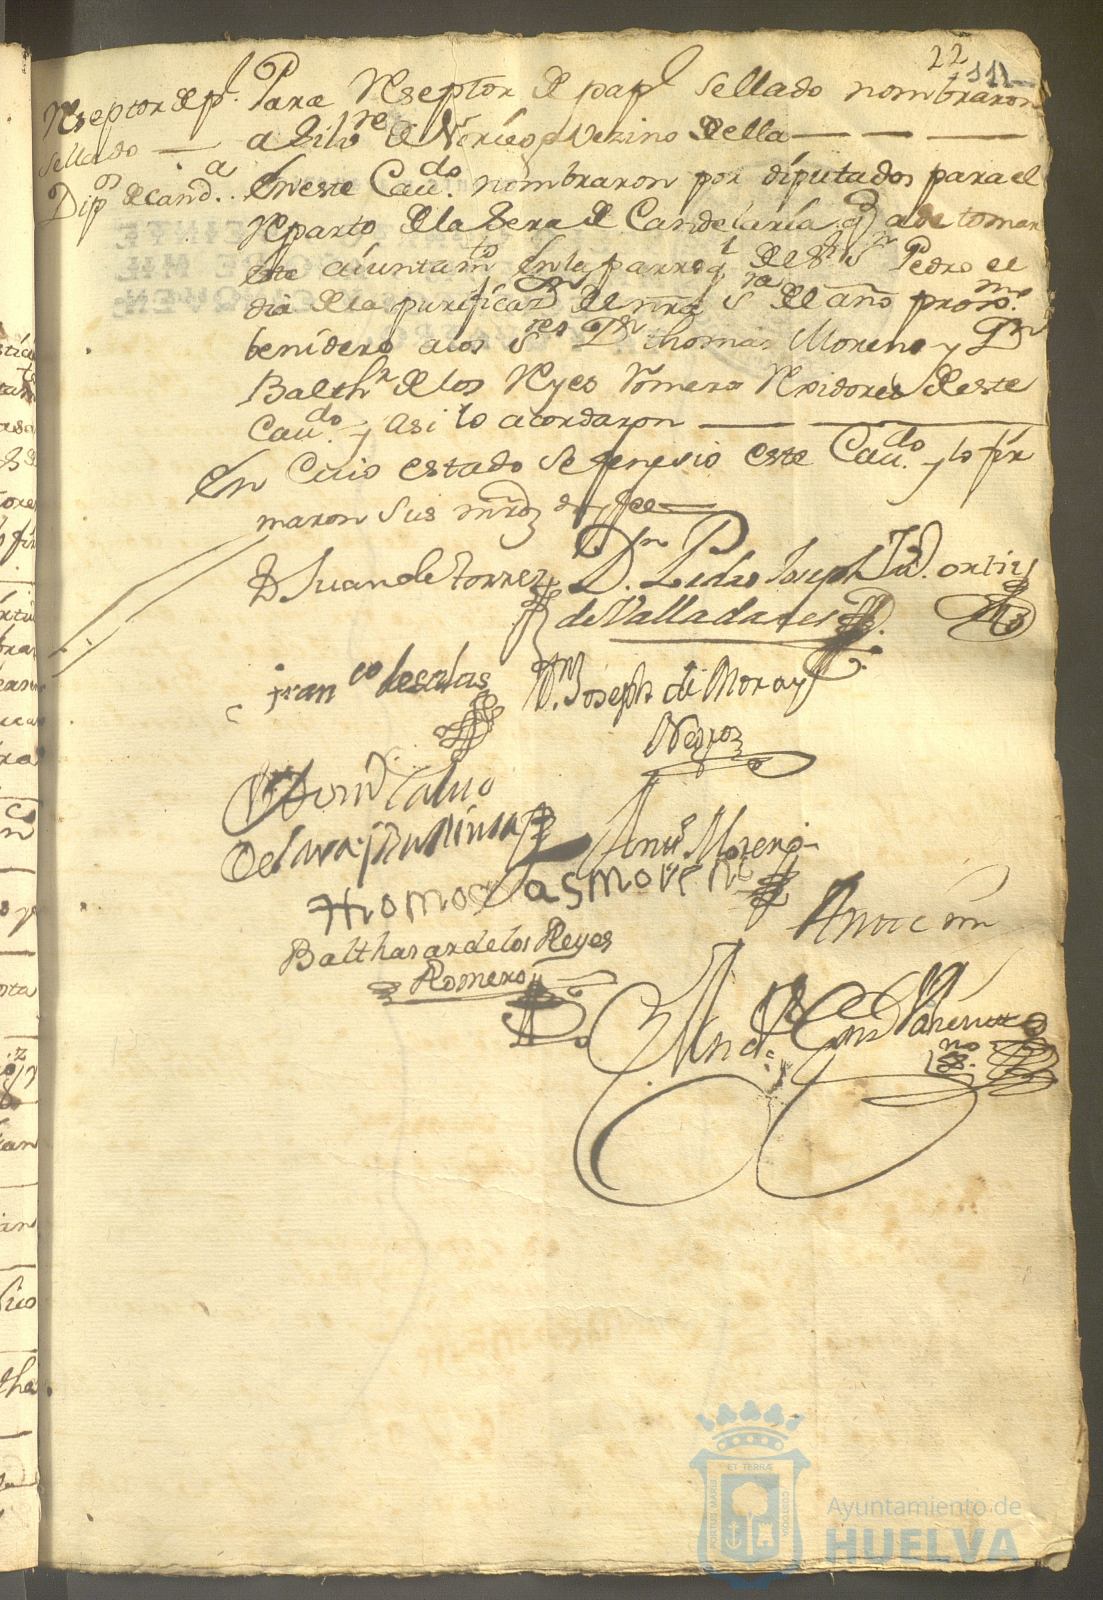 22
111
Reseptor de p.l
sellado
Dip.os de cand.a
Para Reseptor de pap.l sellado nombraron
a Silv.re de Vezino della
En este Cau.do nombraron por diputados para el
Reparto de la Sera de Candelaria q ade tomar
este aiuntam.to en la parroq.l de S.r S.n Pedro el
dia de la purificaz.n de nra S.ra de el año prox.mo
benidero a los S.res D.n thomas Moreno y D.n
Balth.r de los Reyes Romero Rexidores de este
Cau.do y Asi lo acordaron
En Cuio estado se fenesio este Cau.do y lo fir
maron Sus mrds doy fee
D Juan de torres
D.n Pedro Joseph
ortiz
de Valladares
fran.co de salas
D.n Joseph de Mora y
Negron
Calvo
de Lara
Ant.o Moreno
thomas moreno
Balthasar de los Reyes
Romero
Ante mi
PORTUS MARIS
ET TERRÆ
CUSTODIA
Ayuntamiento de
HUELVA